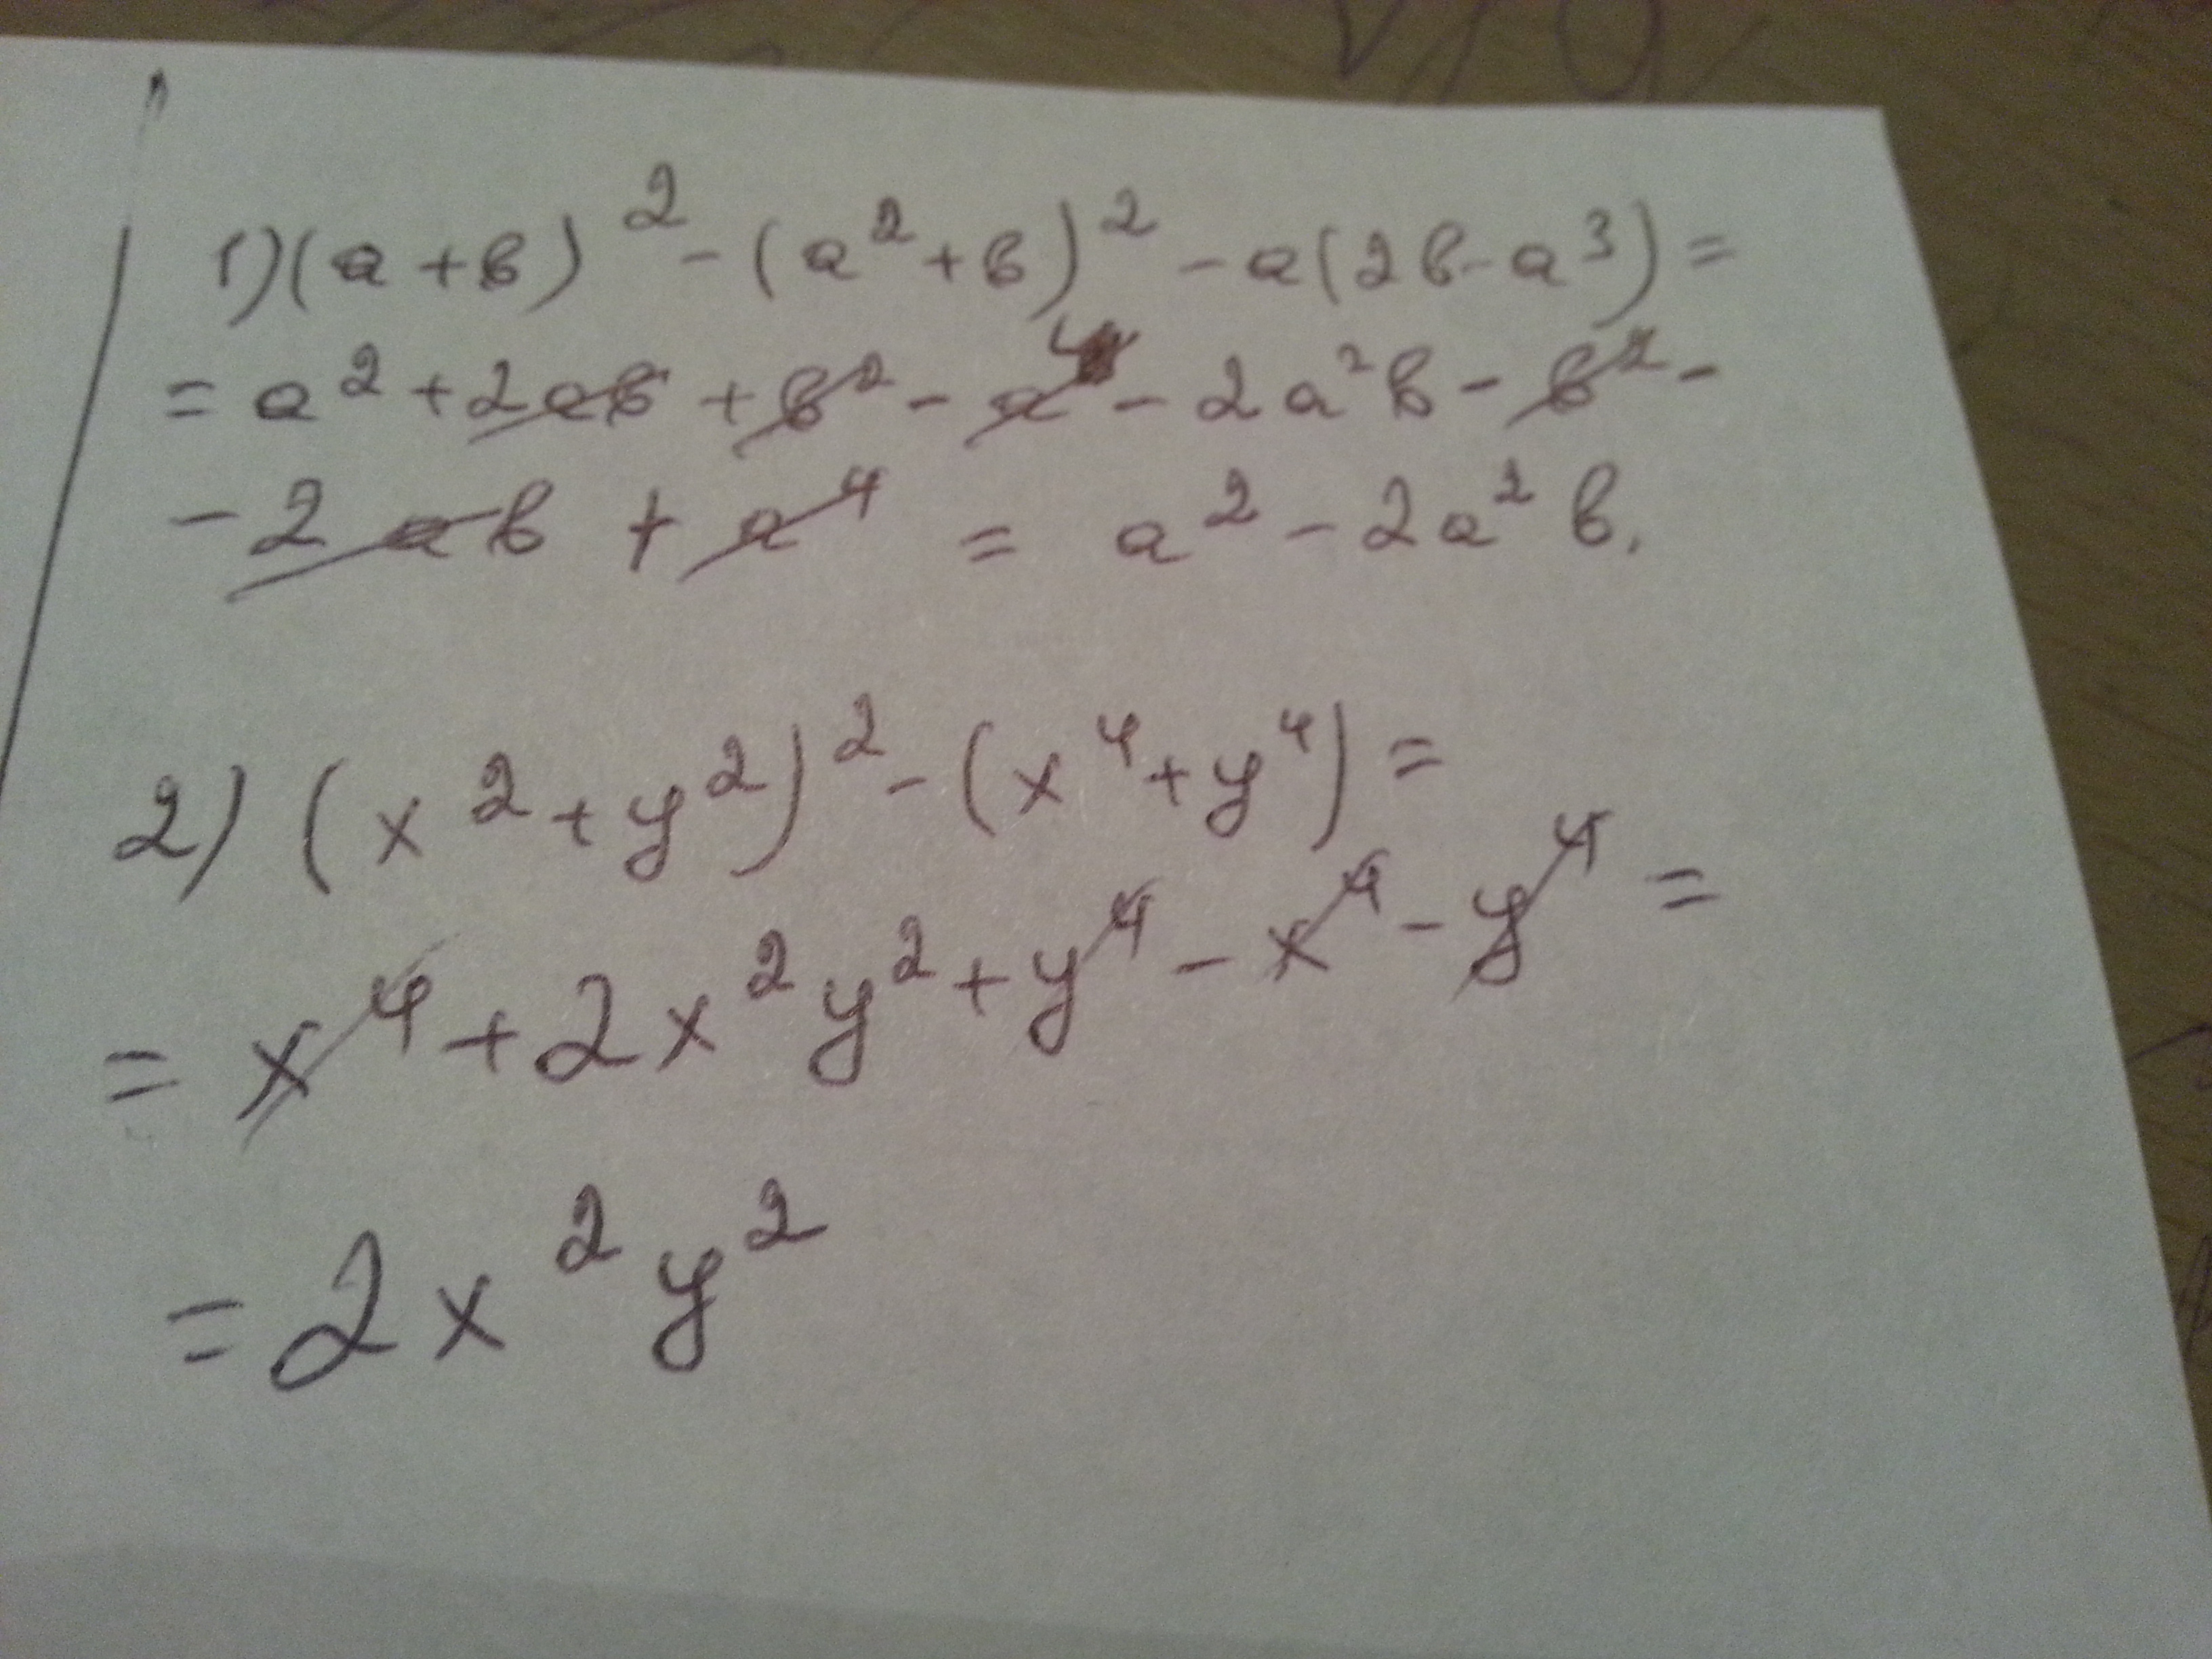 1) (a+b)² - (a²+b)² - a(2b-a³) =
= a² + 2ab + b² - a⁴ - 2a²b - b² -
- 2ab + a⁴ = a² - 2a²b.
2) (x²+y²)² - (x⁴+y⁴) =
= x⁴ + 2x²y² + y⁴ - x⁴ - y⁴ =
= 2x²y²